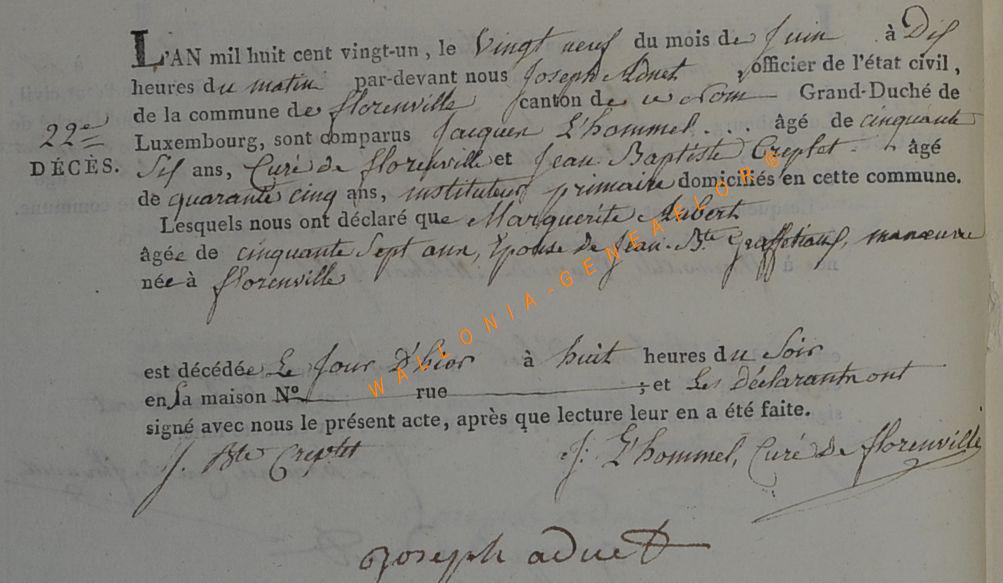 L'AN mil huit cent vingt-un, le Vingt neuf du mois de Juin à Dix
heures du matin par-devant nous Joseph Adnet, officier de l'état civil,
de la commune de florenville canton de ce Nom Grand-Duché de
22e
DÉCÈS.
Luxembourg, sont comparus Jacques L'hommel... âgé de cinquante
Six ans, Curé de florenville et Jean Baptiste Creplet âgé
de quarante cinq ans, instituteur primaire domiciliés en cette commune.
Lesquels nous ont déclaré que Marguerite Aubert
âgée de cinquante Sept ans, Epouse de Jean Bte manœuvre
née à florenville
est décédée Le Jour D'hier à huit heures du Soir
en Sa maison No rue ; et Les Déclarants ont
signé avec nous le présent acte, après que lecture leur en a été faite.
J. Bte Creplet
J: L'hommel, Curé de florenville
Joseph adnet
WALLONIA-GENEAFLOR©